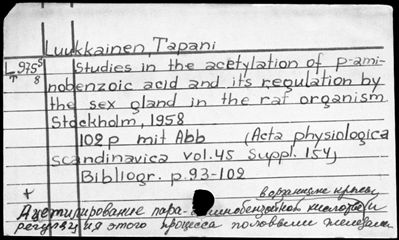 Luukkainen, Tapani
L 975 s
т 8
Studies in the acetylation of p-ami-
nobenzoic acid and its regulation by
the sex gland in the rat organism
Stockholm, 1958
102 p mit Abb (Acta physiologica
scandinavica vol. 45 Suppl. 154)
Bibliogr. p. 93-102
+
в организме крысы,
Ацетилирование пара-аминобензойной кислоты и
регуляция этого процесса половыми железами